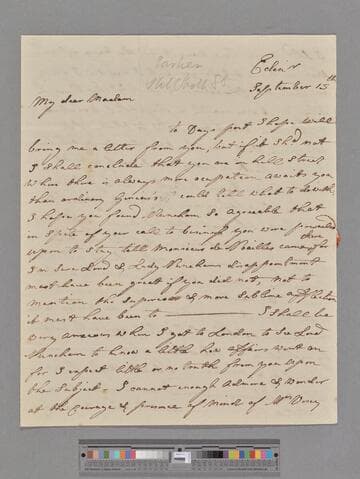 Septembr 15th
My dear Madam
to Days post I hope will
bring me a letter from you, but if it shd not
I shall conclude that you are in Hill Street
where there is always more occupation awaits you
than ordinary Genius's could tell what to do with
I hope you found so agreable that
in spite of your call to business you were prevailed
upon to stay till Monsieur de Noailles came
I'm sure Lord & Lady disappointment
must have been great if you did not, not to
mention the Superior & more Sublime affliction
it must have been to ———— I shall be
very anxious when I get to London to see Lord
to know a little how affairs went on
for I expect little or no truth from you upon
the Subject. I cannot enough Admire & wonder
at the Courage & presence of Mind of Mrs